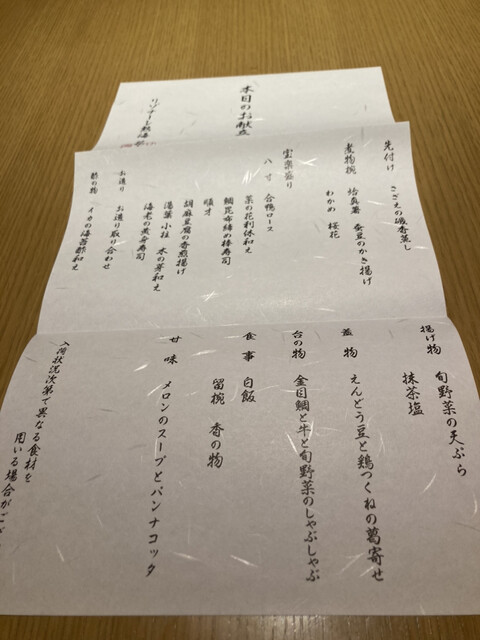 本日のお献立
リゾナーレ熱海
先付け さざえの磯香蒸し
煮物椀 蛤真薯 蚕豆のかき揚げ
わかめ 桜花
宝楽盛り
八寸 合鴨ロース
菜の花利休和え
鯛昆布締め棒寿司
順才
胡麻豆腐の香煎揚げ
湯葉 小柱 木の芽和え
海老の黄身寿司
お造り お造り取り合わせ
酢の物 イカの海苔酢和え
揚げ物 旬野菜の天ぷら
抹茶塩
蓋物 えんどう豆と鶏つくねの葛寄せ
台の物 金目鯛と牛と旬野菜のしゃぶしゃぶ
食事 白飯
留椀 香の物
甘味 メロンのスープとパンナコッタ
入荷状況次第で異なる食材を
用いる場合がござ